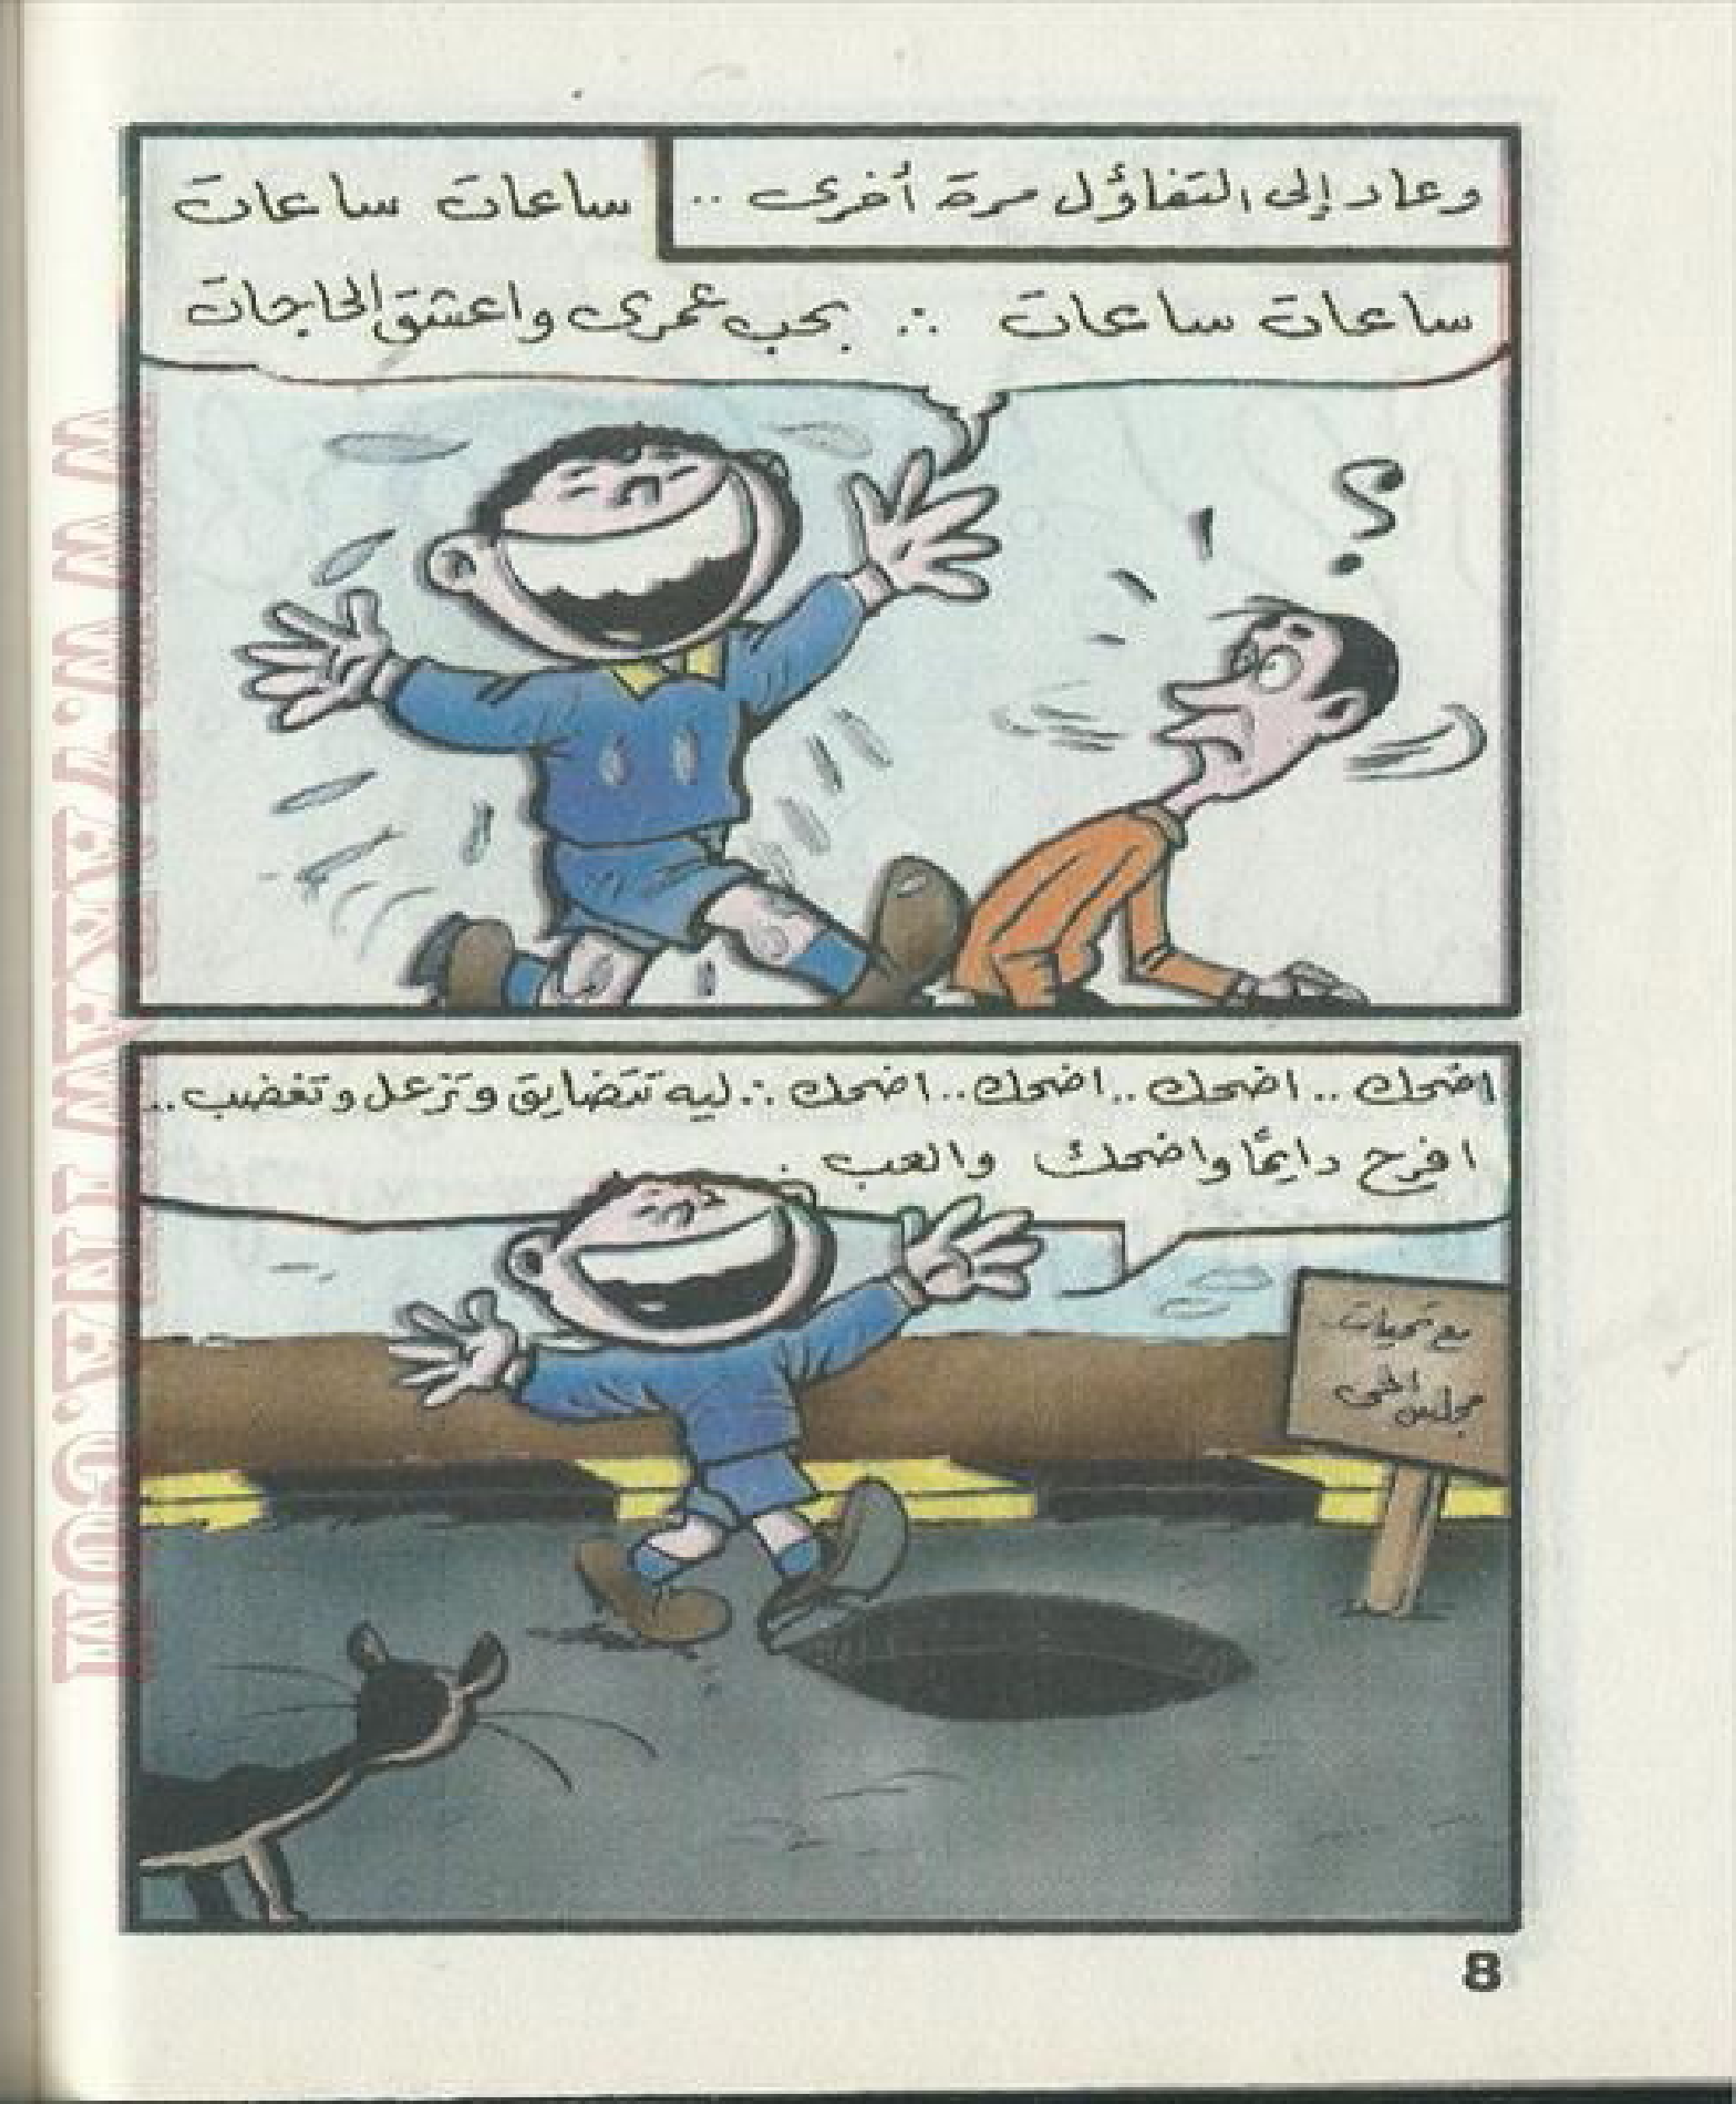 وعاد إلى التفاؤل مرة أخرى ..
ساعات ساعات
ساعات ساعات ∴ بحب عمرى واعشق الحاجات
اضحك .. اضحك .. اضحك .. اضحك ∴ ليه تتضايق وتزعل وتغضب ..
افرح دايمًا واضحك والعب .
مع تحيات ..
مجلس الحى
8